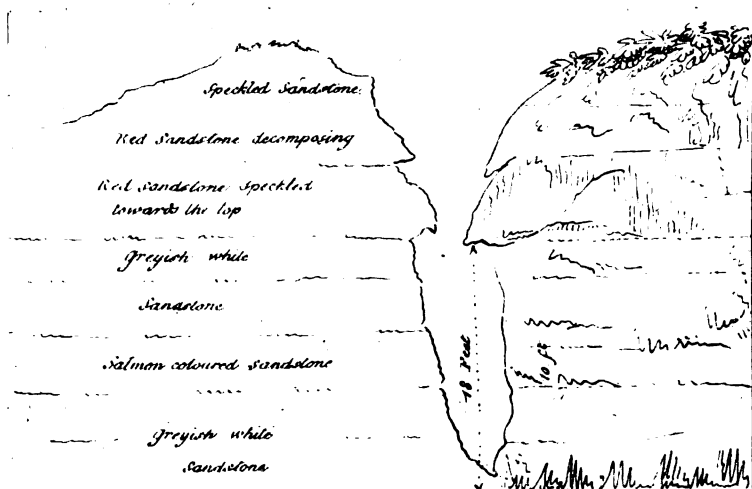 Speckled Sandstone.
Red Sandstone decomposing
Red Sandstone Speckled
towards the top
Greyish white
Sandstone
Salmon coloured Sandstone
Greyish white
Sandstone
18 Feet
10 ft